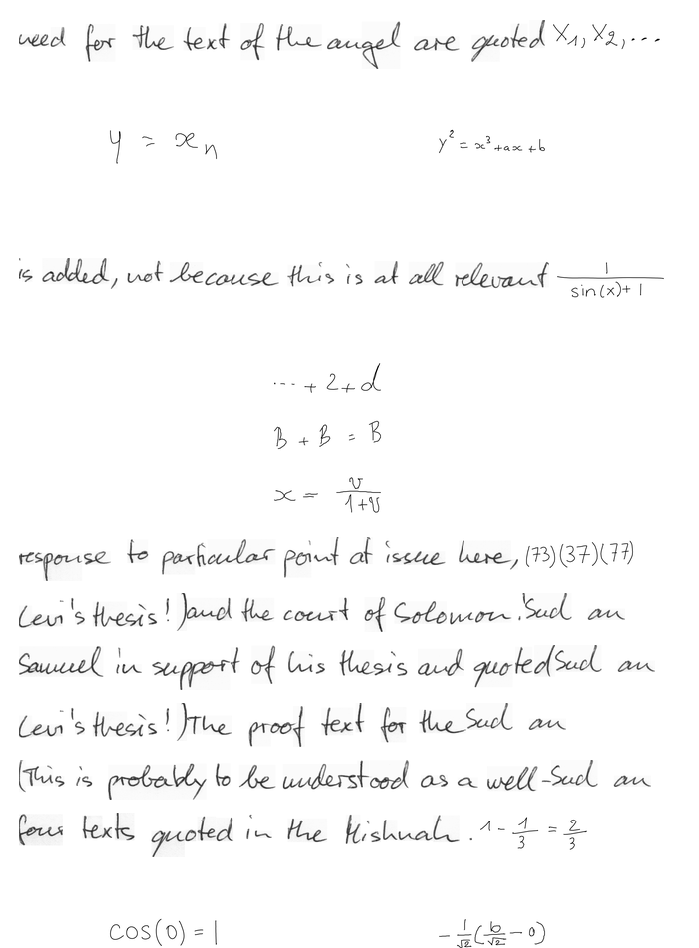 need for the text of the angel are quoted X₁, X₂, ...
y = xₙ
y² = x³ + ax + b
is added, not because this is at all relevant 1/(sin(x)+1)
... + 2 + d
B + B = B
x = v/(1+v)
response to particular point at issue here, (73)(37)(77)
Levi's thesis!) and the court of Solomon. 'Such an
Samuel in support of his thesis and quoted Such an
Levi's thesis!) The proof text for the Such an
(This is probably to be understood as a well-Such an
four texts quoted in the Mishnah. 1 - 1/3 = 2/3
cos(0) = 1
-1/√2 (b/√2 - 0)